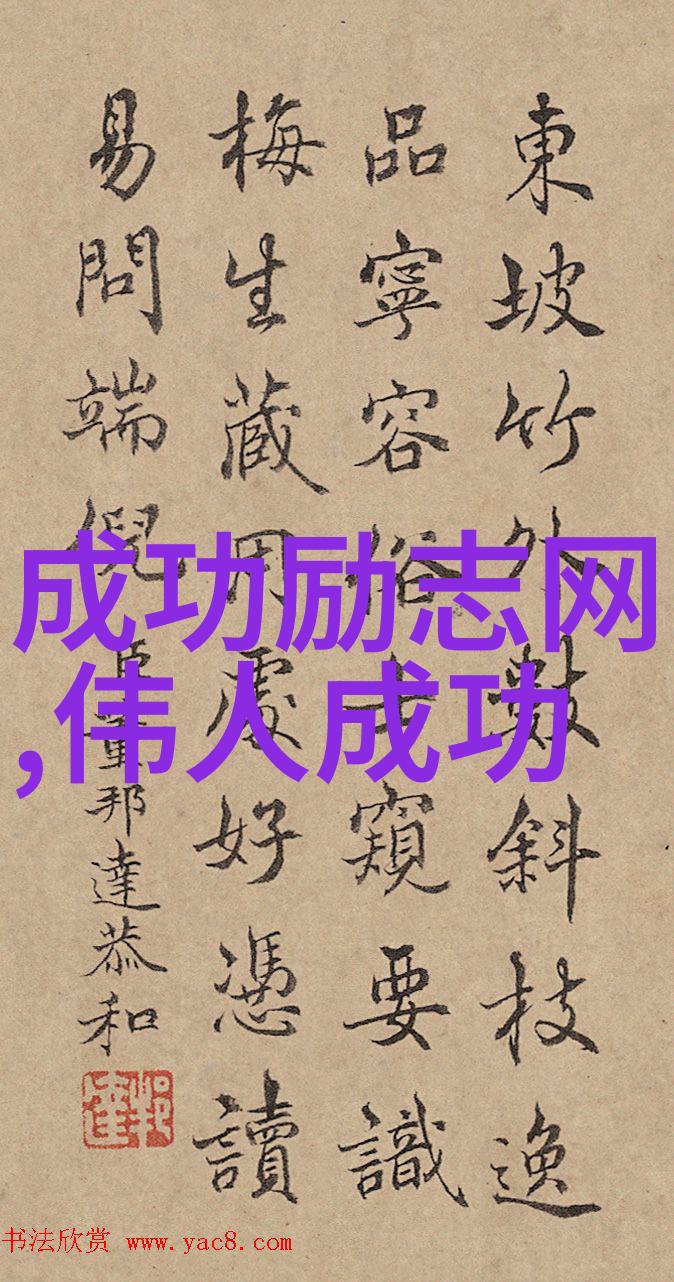 東坡竹外數斜枝逸
品寧容俗士窺要識
梅生藏用處好憑讀
易問端倪 臣董邦達恭和
成功励志网
,伟人成功
书法欣赏 www.yac8.com